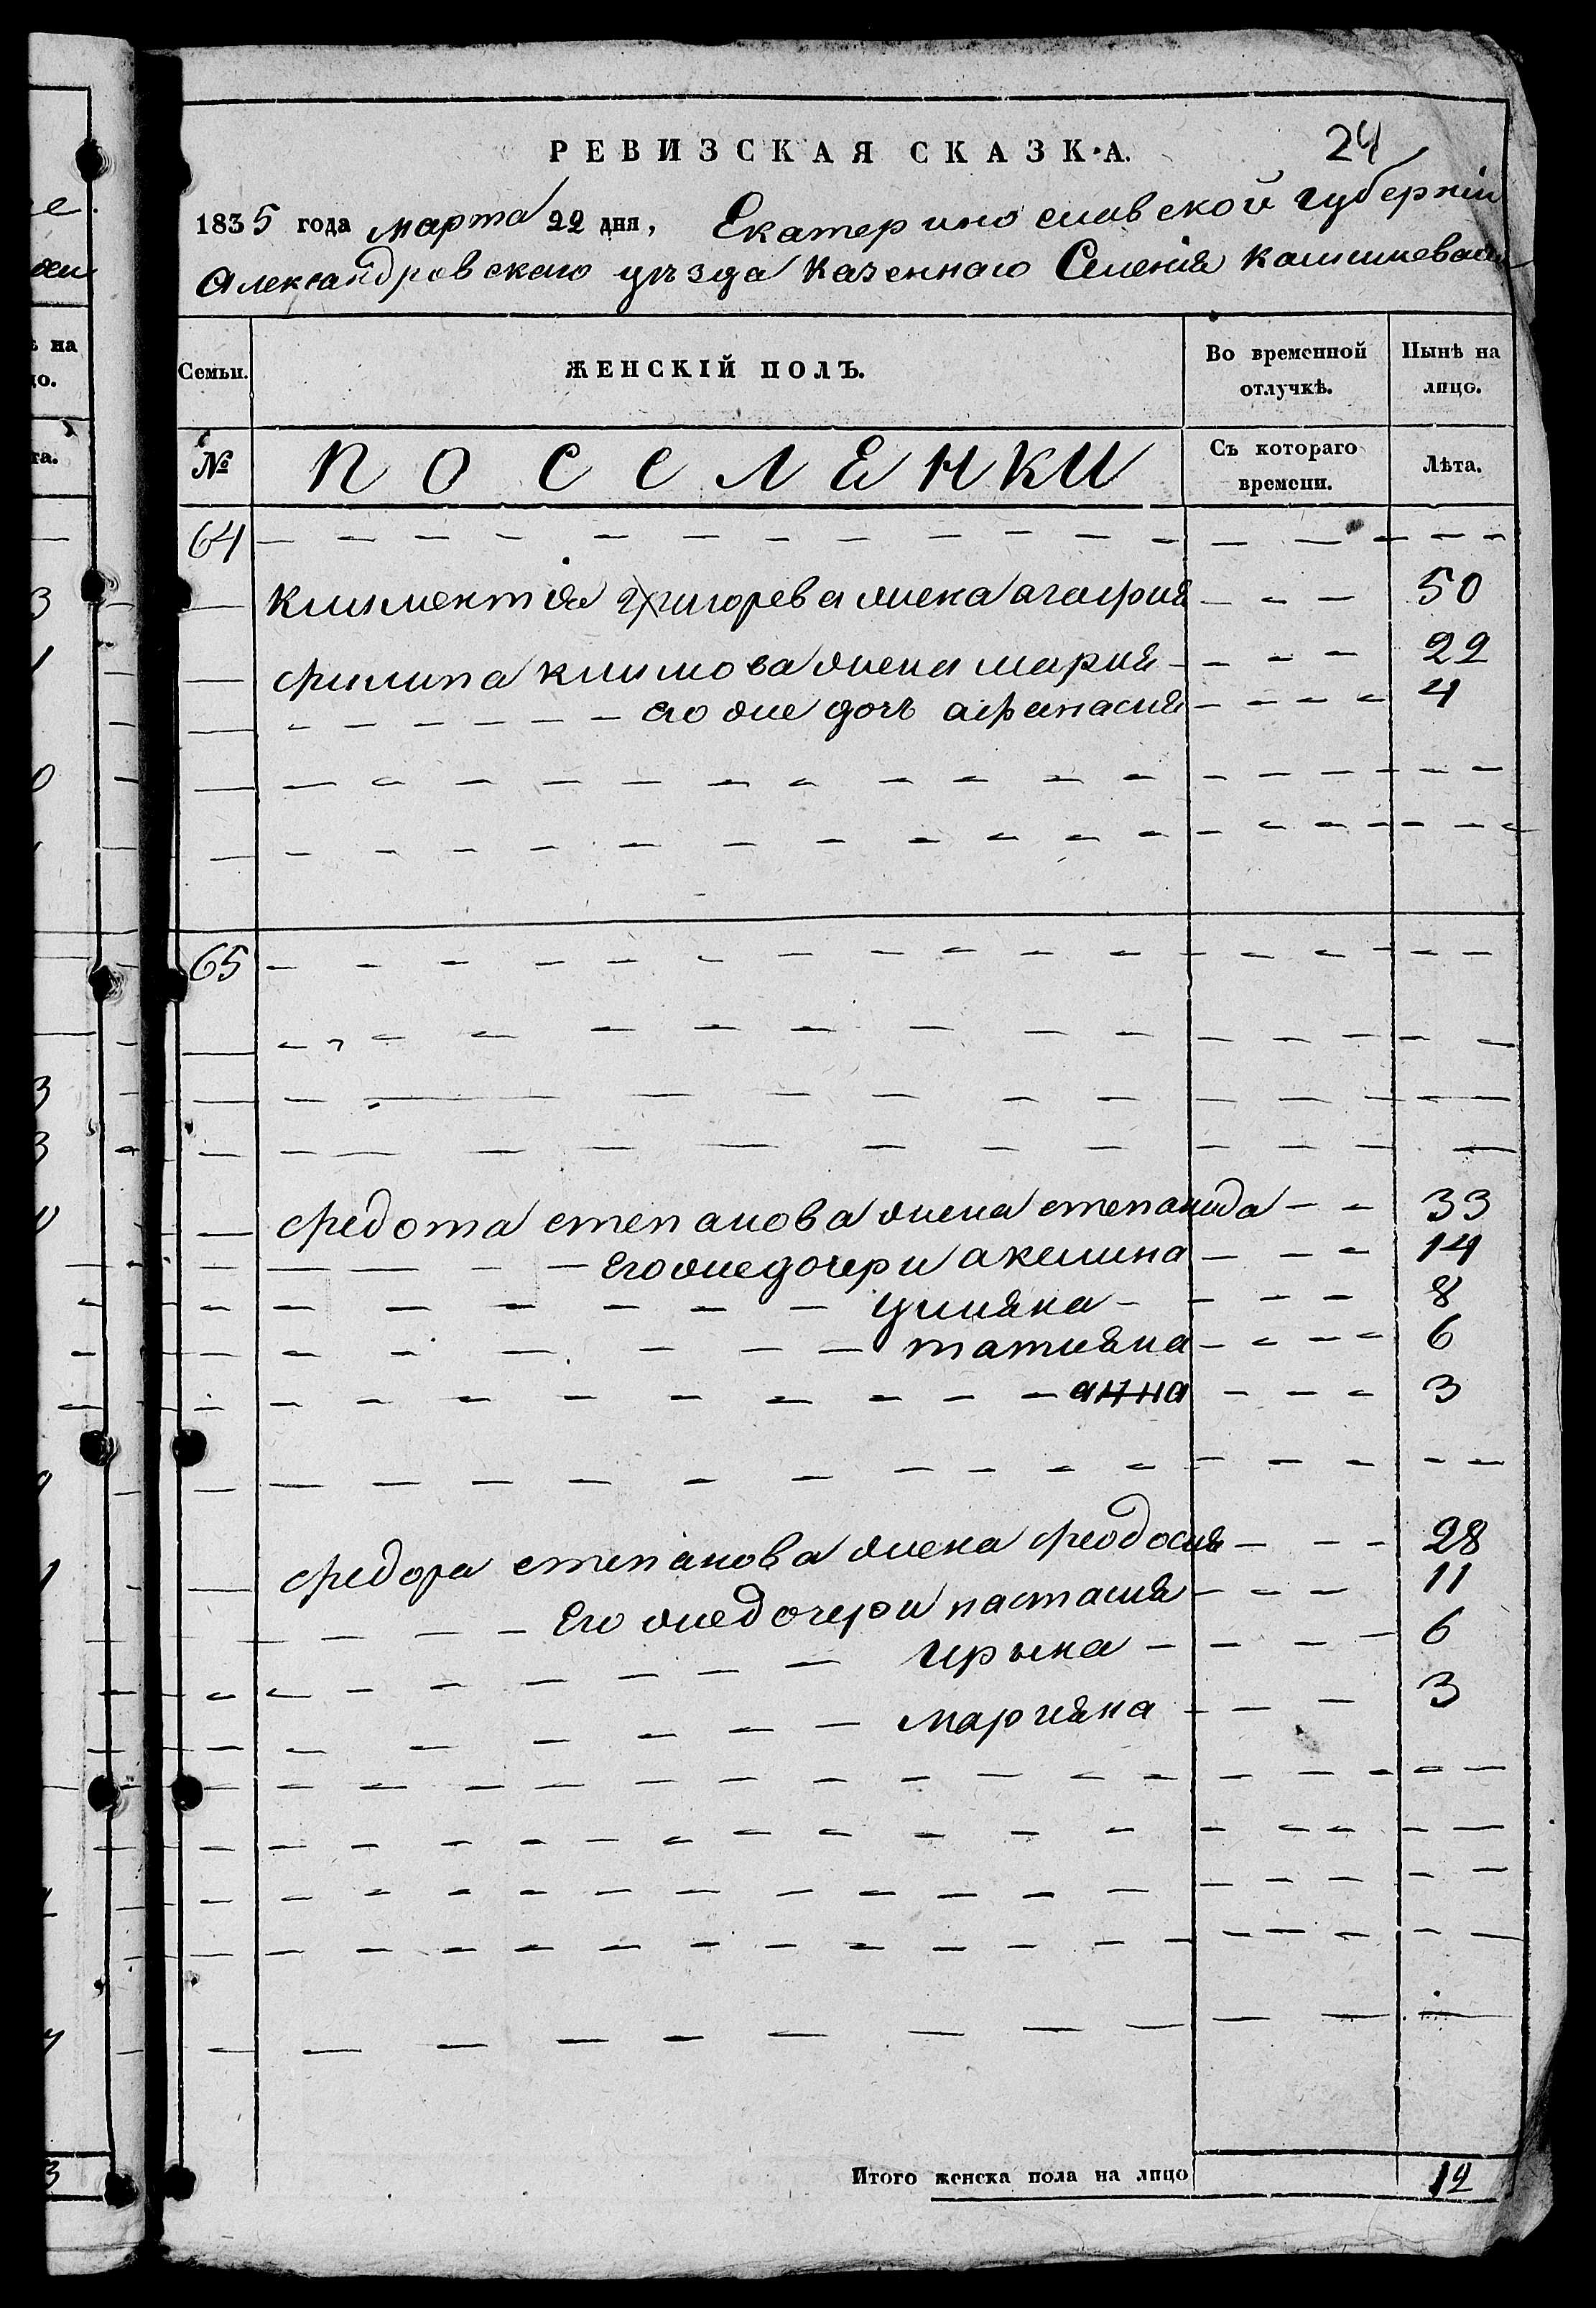 РЕВИЗСКАЯ СКАЗКА.
24
1835 года марта 22 дня, Екатеринославской губерніи
Александровскаго уѣзда Казеннаго Селенія
Семьи.
ЖЕНСКІЙ ПОЛЪ.
Во временной отлучкѣ.
Нынѣ на лицо.
№
ПОСЕЛЕНКИ
Съ котораго времени.
Лѣта.
64
григорева жена агафия 50
филипа климова жена мария 22
его же дочь афанасия 4
65
федота степанова жена степанида 33
Его же дочери акелина 14
улияна 8
татияна 6
анна 3
федора степанова жена феодосия 28
Его же дочери настасия 11
ирына 6
марияна 3
Итого женска пола на лицо 12